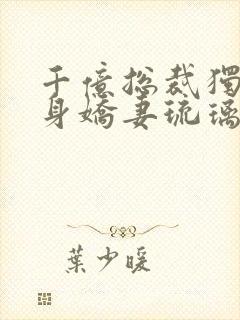 千億總裁獨
身嬌妻琉璃
葉少暖